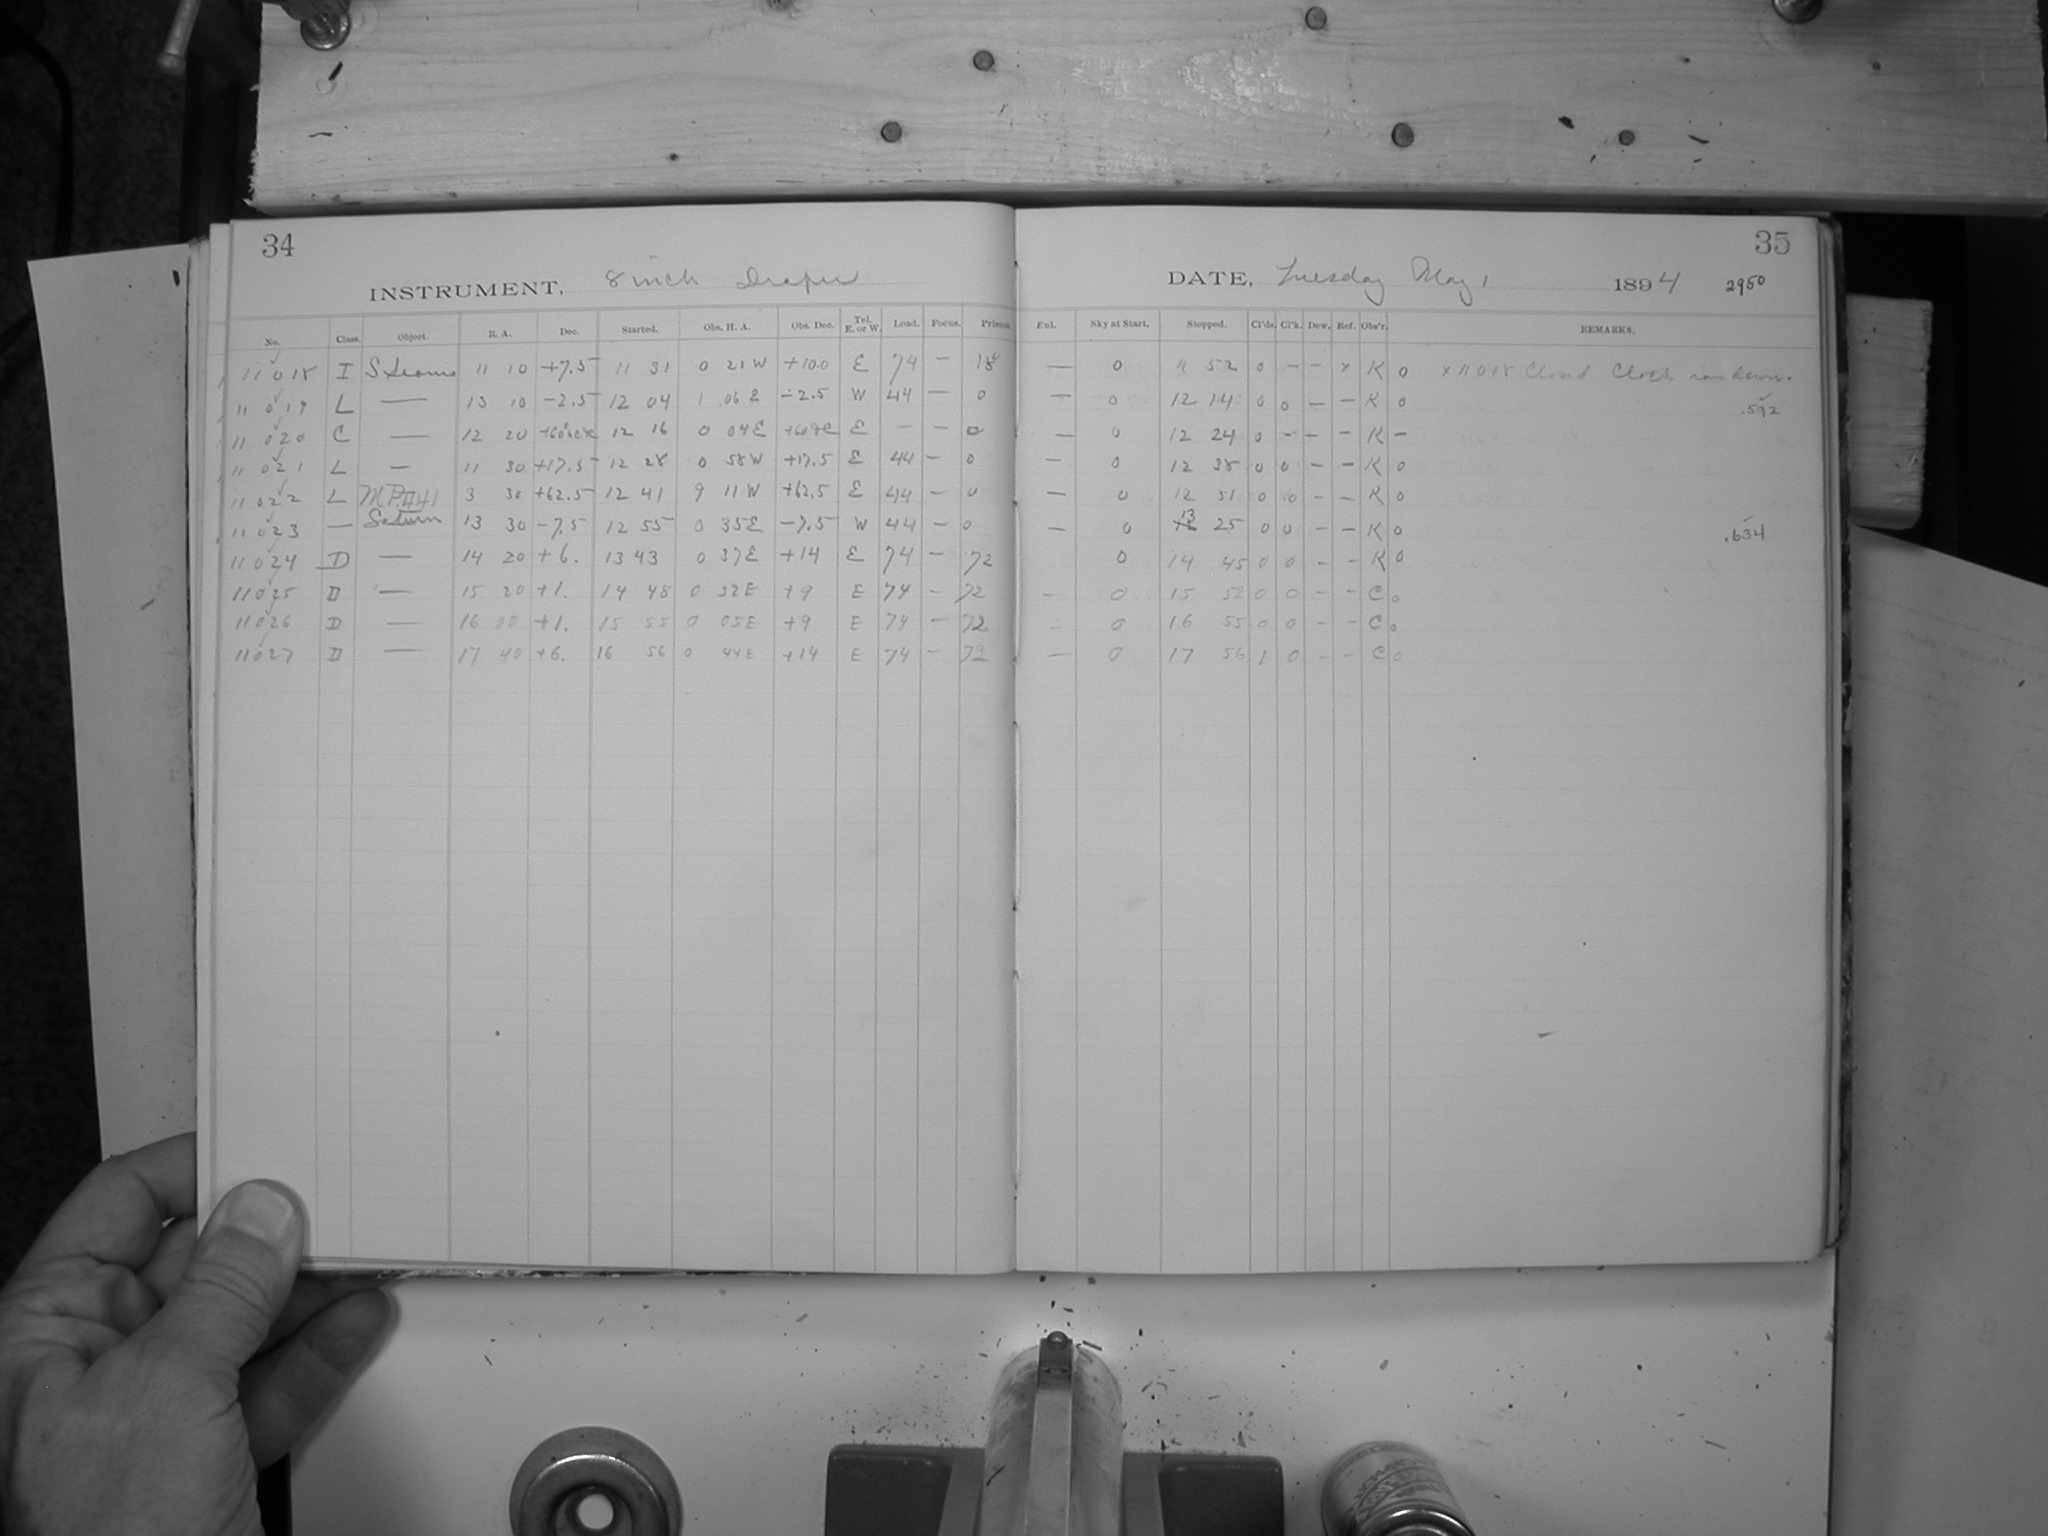 34
INSTRUMENT, 8 inch Draper
No. Class. Object. R. A. Dec. Started. Obs. H. A. Obs. Dec. Tel. E. or W. Load. Focus. Prisms.
11018 I 11 10 +7.5 11 31 0 21 W +10.0 E 74 — 18
11019 L — 13 10 -2.5 12 04 1 06 E -2.5 W 44 — 0
11020 C — 12 20 12 16 0 04 E E — — 0
11021 L — 11 30 +17.5 12 28 0 58 W +17.5 E 44 — 0
11022 L 3 30 +62.5 12 41 9 11 W +62.5 E 44 — 0
11023 — Saturn 13 30 -7.5 12 55 0 35 E -7.5 W 44 — 0
11024 D — 14 20 +6. 13 43 0 37 E +14 E 74 — 72
11025 D — 15 20 +1. 14 48 0 32 E +9 E 74 — 72
11026 D — 16 00 +1. 15 55 0 05 E +9 E 74 — 72
11027 D — 17 40 +6. 16 56 0 44 E +14 E 74 — 72
35
DATE, Tuesday May 1 1894 2950
Enl. Sky at Start. Stopped. Cl'ds. Cl'k. Dew. Ref. Obs'r. REMARKS.
— 0 11 52 0 — — x K 0 x 11018 Cloud Clock ran down.
— 0 12 14 0 0 — — K 0 .592
— 0 12 24 0 — — — K —
— 0 12 38 0 0 — — K 0
— 0 12 51 0 0 — — K 0
— 0 13 25 0 0 — — K 0 .634
0 14 45 0 0 — — K 0
— 0 15 52 0 0 — — C 0
— 0 16 55 0 0 — — C 0
— 0 17 56 1 0 — — C 0